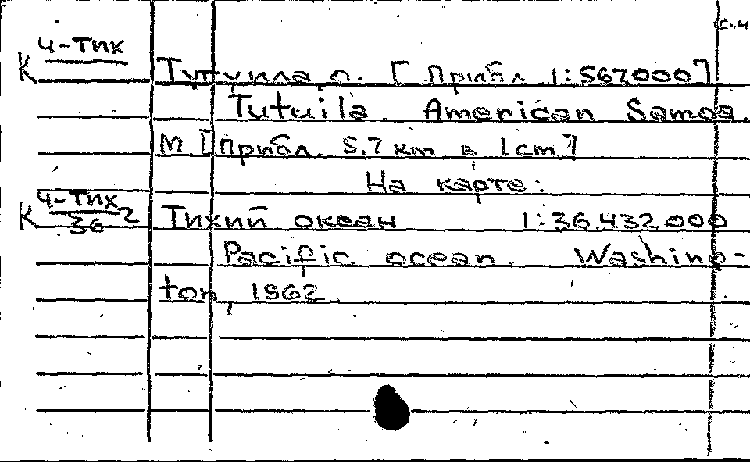 с.ч
К 4-Тик
Тутуила о. [Прибл. 1:567000]
Tutuila. American Samoa.
М [Прибл. 5,7 км в 1 cm]
На карте:
К 4-Тих/36 2 Тихий океан 1:36.432.000
Pacific ocean. Washing-
ton, 1962.